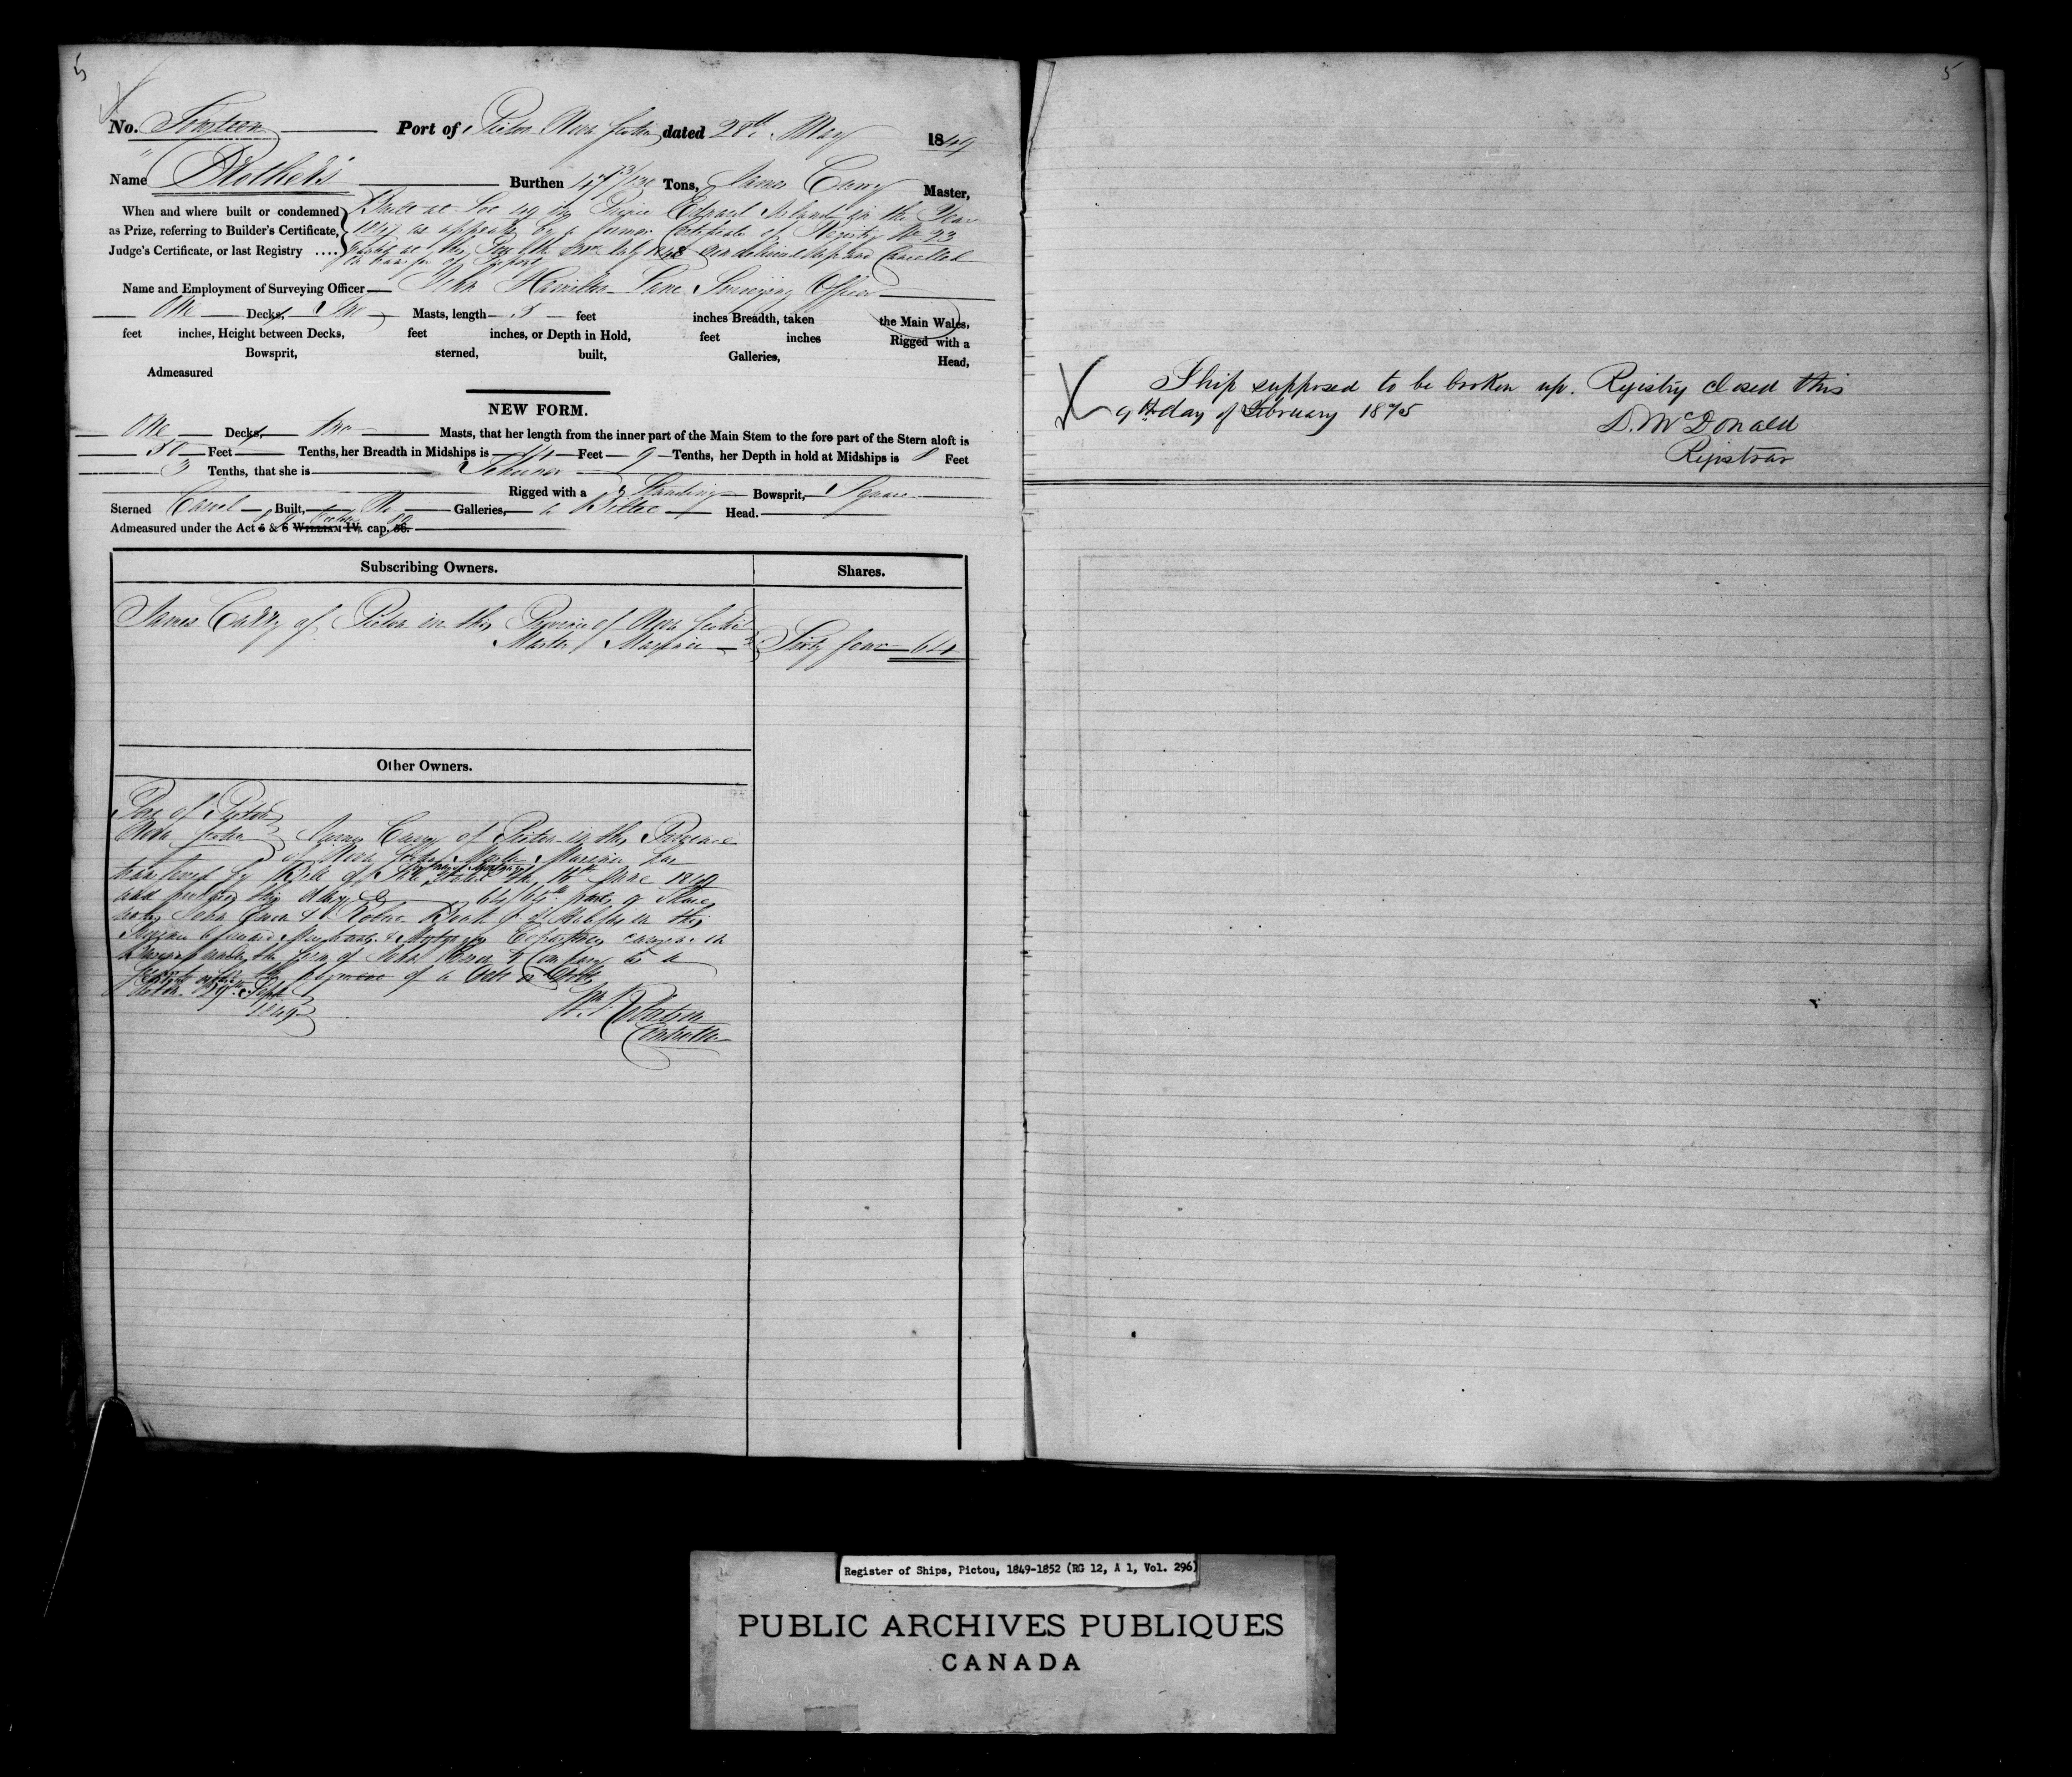 5
No. Fourteen Port of Pictou Nova Scotia dated 28th May 1849
Name Brothers Burthen 73/130 Tons, James Carry Master,
When and where built or condemned
as Prize, referring to Builder's Certificate,
Judge's Certificate, or last Registry ....
Built at Prince Edward Island in the Year
1847 as appears by a former Certificate of Registry No 93
at this Port the 1848 delivered up and Cancelled
Name and Employment of Surveying Officer John Hamilton Lane Surveying Officer
One Decks, Two Masts, length feet inches Breadth, taken the Main Wales,
feet inches, Height between Decks, feet inches, or Depth in Hold, feet inches Rigged with a
Bowsprit, sterned, built, Galleries, Head,
Admeasured
NEW FORM.
One Decks, Two Masts, that her length from the inner part of the Main Stem to the fore part of the Stern aloft is
50 Feet Tenths, her Breadth in Midships is 14 Feet 9 Tenths, her Depth in hold at Midships is 8 Feet
3 Tenths, that she is Schooner
Rigged with a Standing Bowsprit, Square
Sterned Carvel Built, No Galleries, a Billet Head.
Admeasured under the Act 5 & 6 WILLIAM IV. cap. 56.
Subscribing Owners. Shares.
James Carry of Pictou in the Province of Nova Scotia
Master Mariner Sixty four 64
Other Owners.
Port of Pictou
Nova Scotia James Carry of Pictou in the Province
of Nova Scotia Master Mariner has
transferred by Bill of Sale dated the June 1849
and produced this day 64/64th parts or Shares
unto John & Robert
under the firm of John & Company as a
Security for the payment of a Debt or Debts
Pictou 29th Sept
1849
Controller
5
Ship supposed to be broken up. Registry closed this
9th day of February 1875
D. McDonald
Registrar
Register of Ships, Pictou, 1849-1852 (RG 12, A 1, Vol. 296)
PUBLIC ARCHIVES PUBLIQUES
CANADA